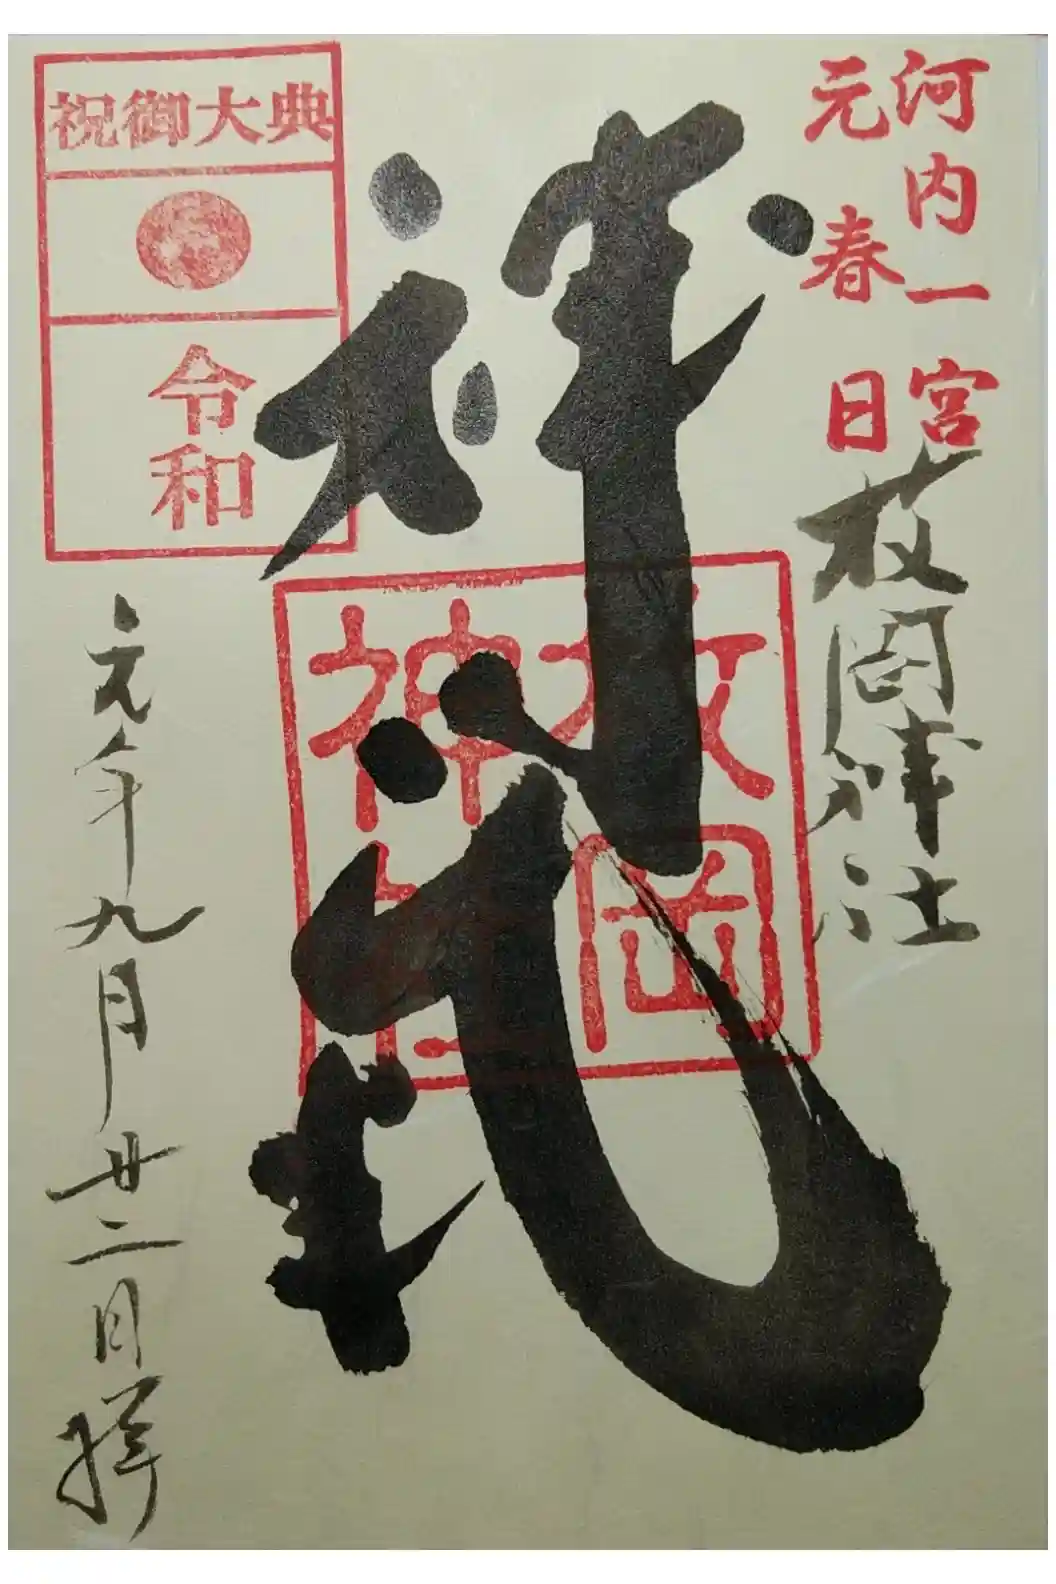 河内一宮
元春日
枚岡神社
枚岡
神社
祥
祝御大典
令和
元年九月廿二日拝